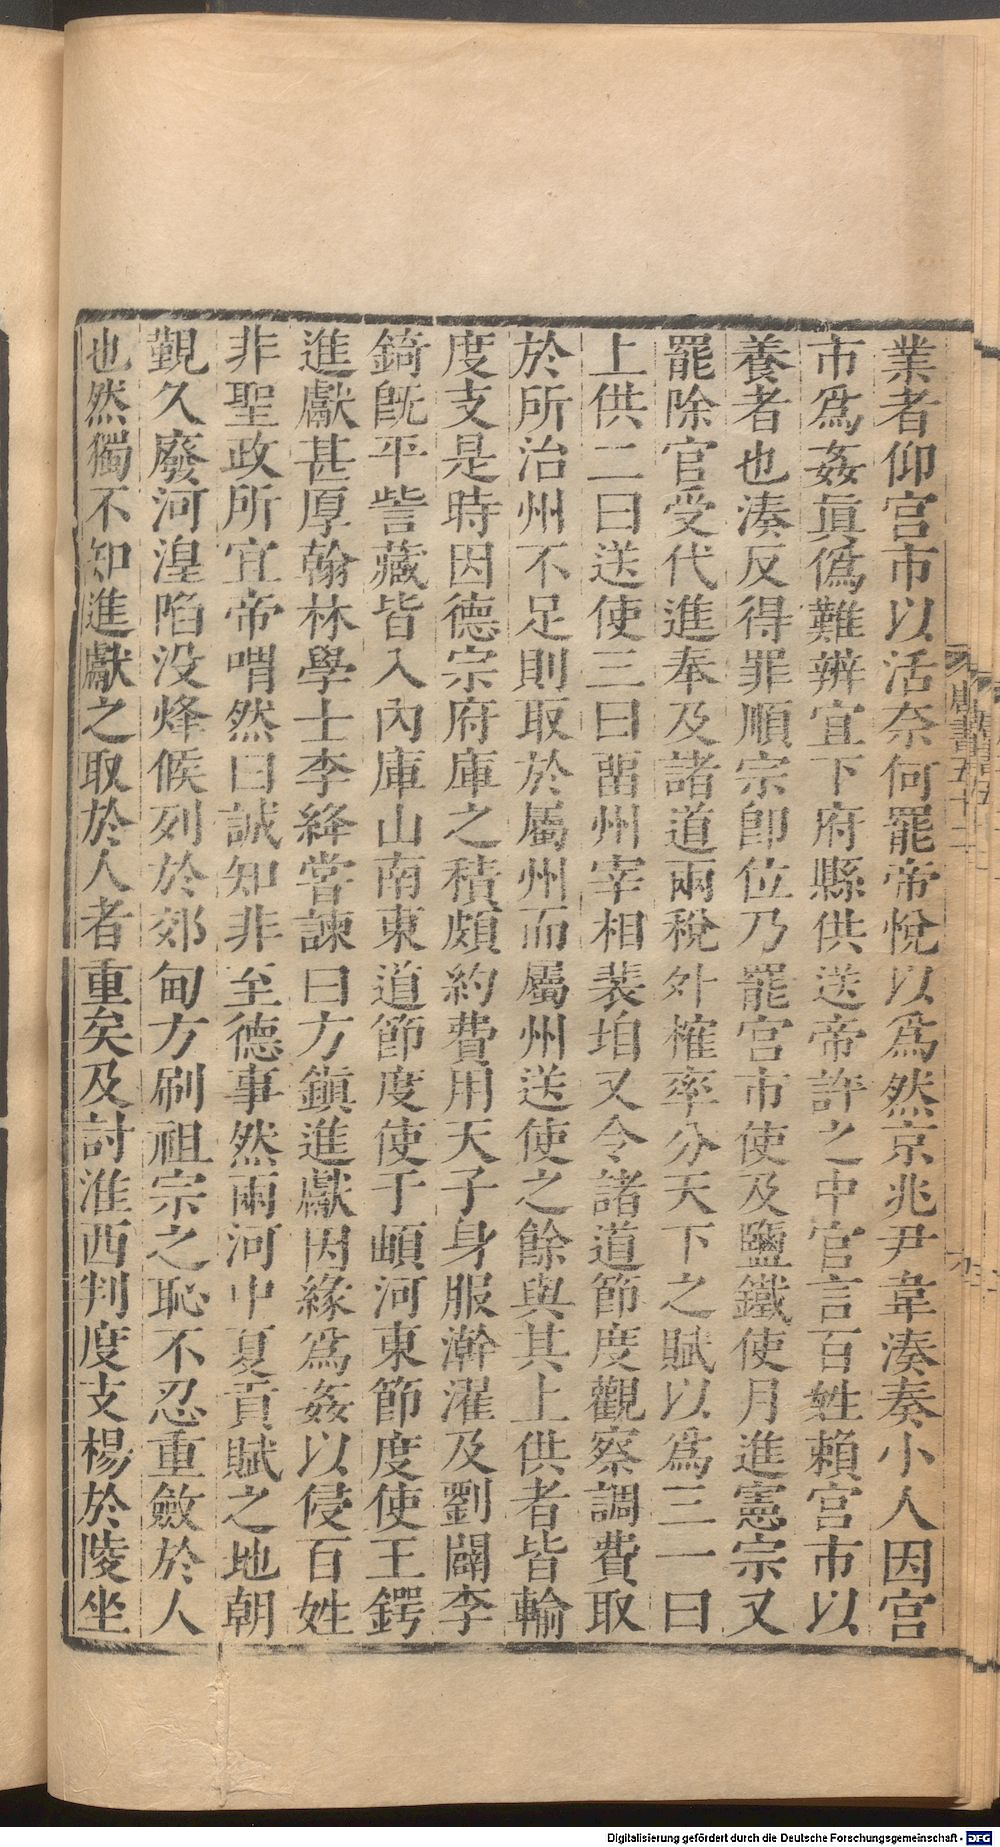 業者仰宮市以活奈何罷帝悅以爲然京兆尹韋湊奏小人因宮
市爲姦眞僞難辨宜下府縣供送帝許之中官言百姓賴宮市以
養者也湊反得罪順宗卽位乃罷宮市使及鹽鐵使月進憲宗又
罷除官受代進奉及諸道兩稅外榷率分天下之賦以爲三一曰
上供二曰送使三曰畱州宰相裴垍又令諸道節度觀察調費取
於所治州不足則取於屬州而屬州送使之餘與其上供者皆輸
度支是時因德宗府庫之積頗約費用天子身服澣濯及劉闢李
錡旣平訾藏皆入內庫山南東道節度使于頔河東節度使王鍔
進獻甚厚翰林學士李絳嘗諫曰方鎭進獻因緣爲姦以侵百姓
非聖政所宜帝喟然曰誠知非至德事然兩河中夏貢賦之地朝
覲久廢河湟陷沒烽候列於郊甸方刷祖宗之恥不忍重斂於人
也然獨不知進獻之取於人者重矣及討淮西判度支楊於陵坐
唐書五十二
Digitalisierung gefördert durch die Deutsche Forschungsgemeinschaft - DFG